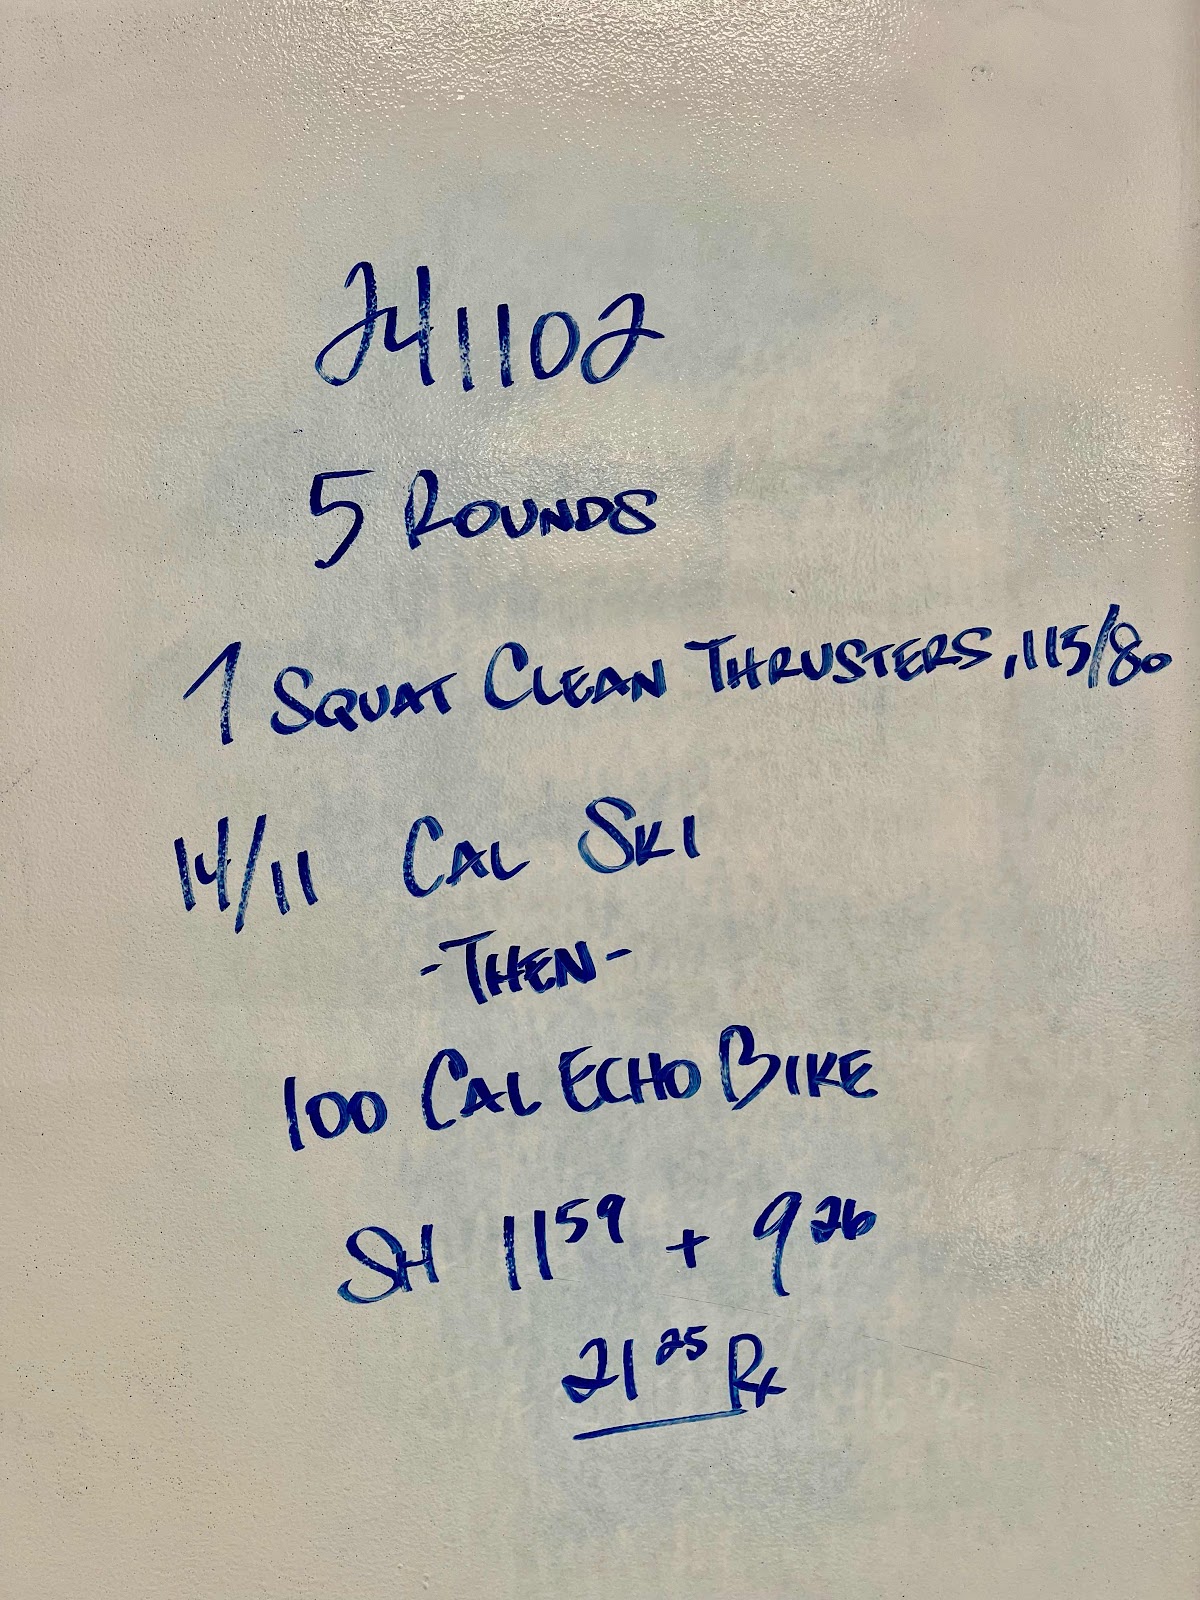 241102
5 ROUNDS
7 SQUAT CLEAN THRUSTERS, 115/80
14/11 CAL SKI
-THEN-
100 CAL ECHO BIKE
SH 11⁵⁹ + 9²⁶
21²⁵ Rx